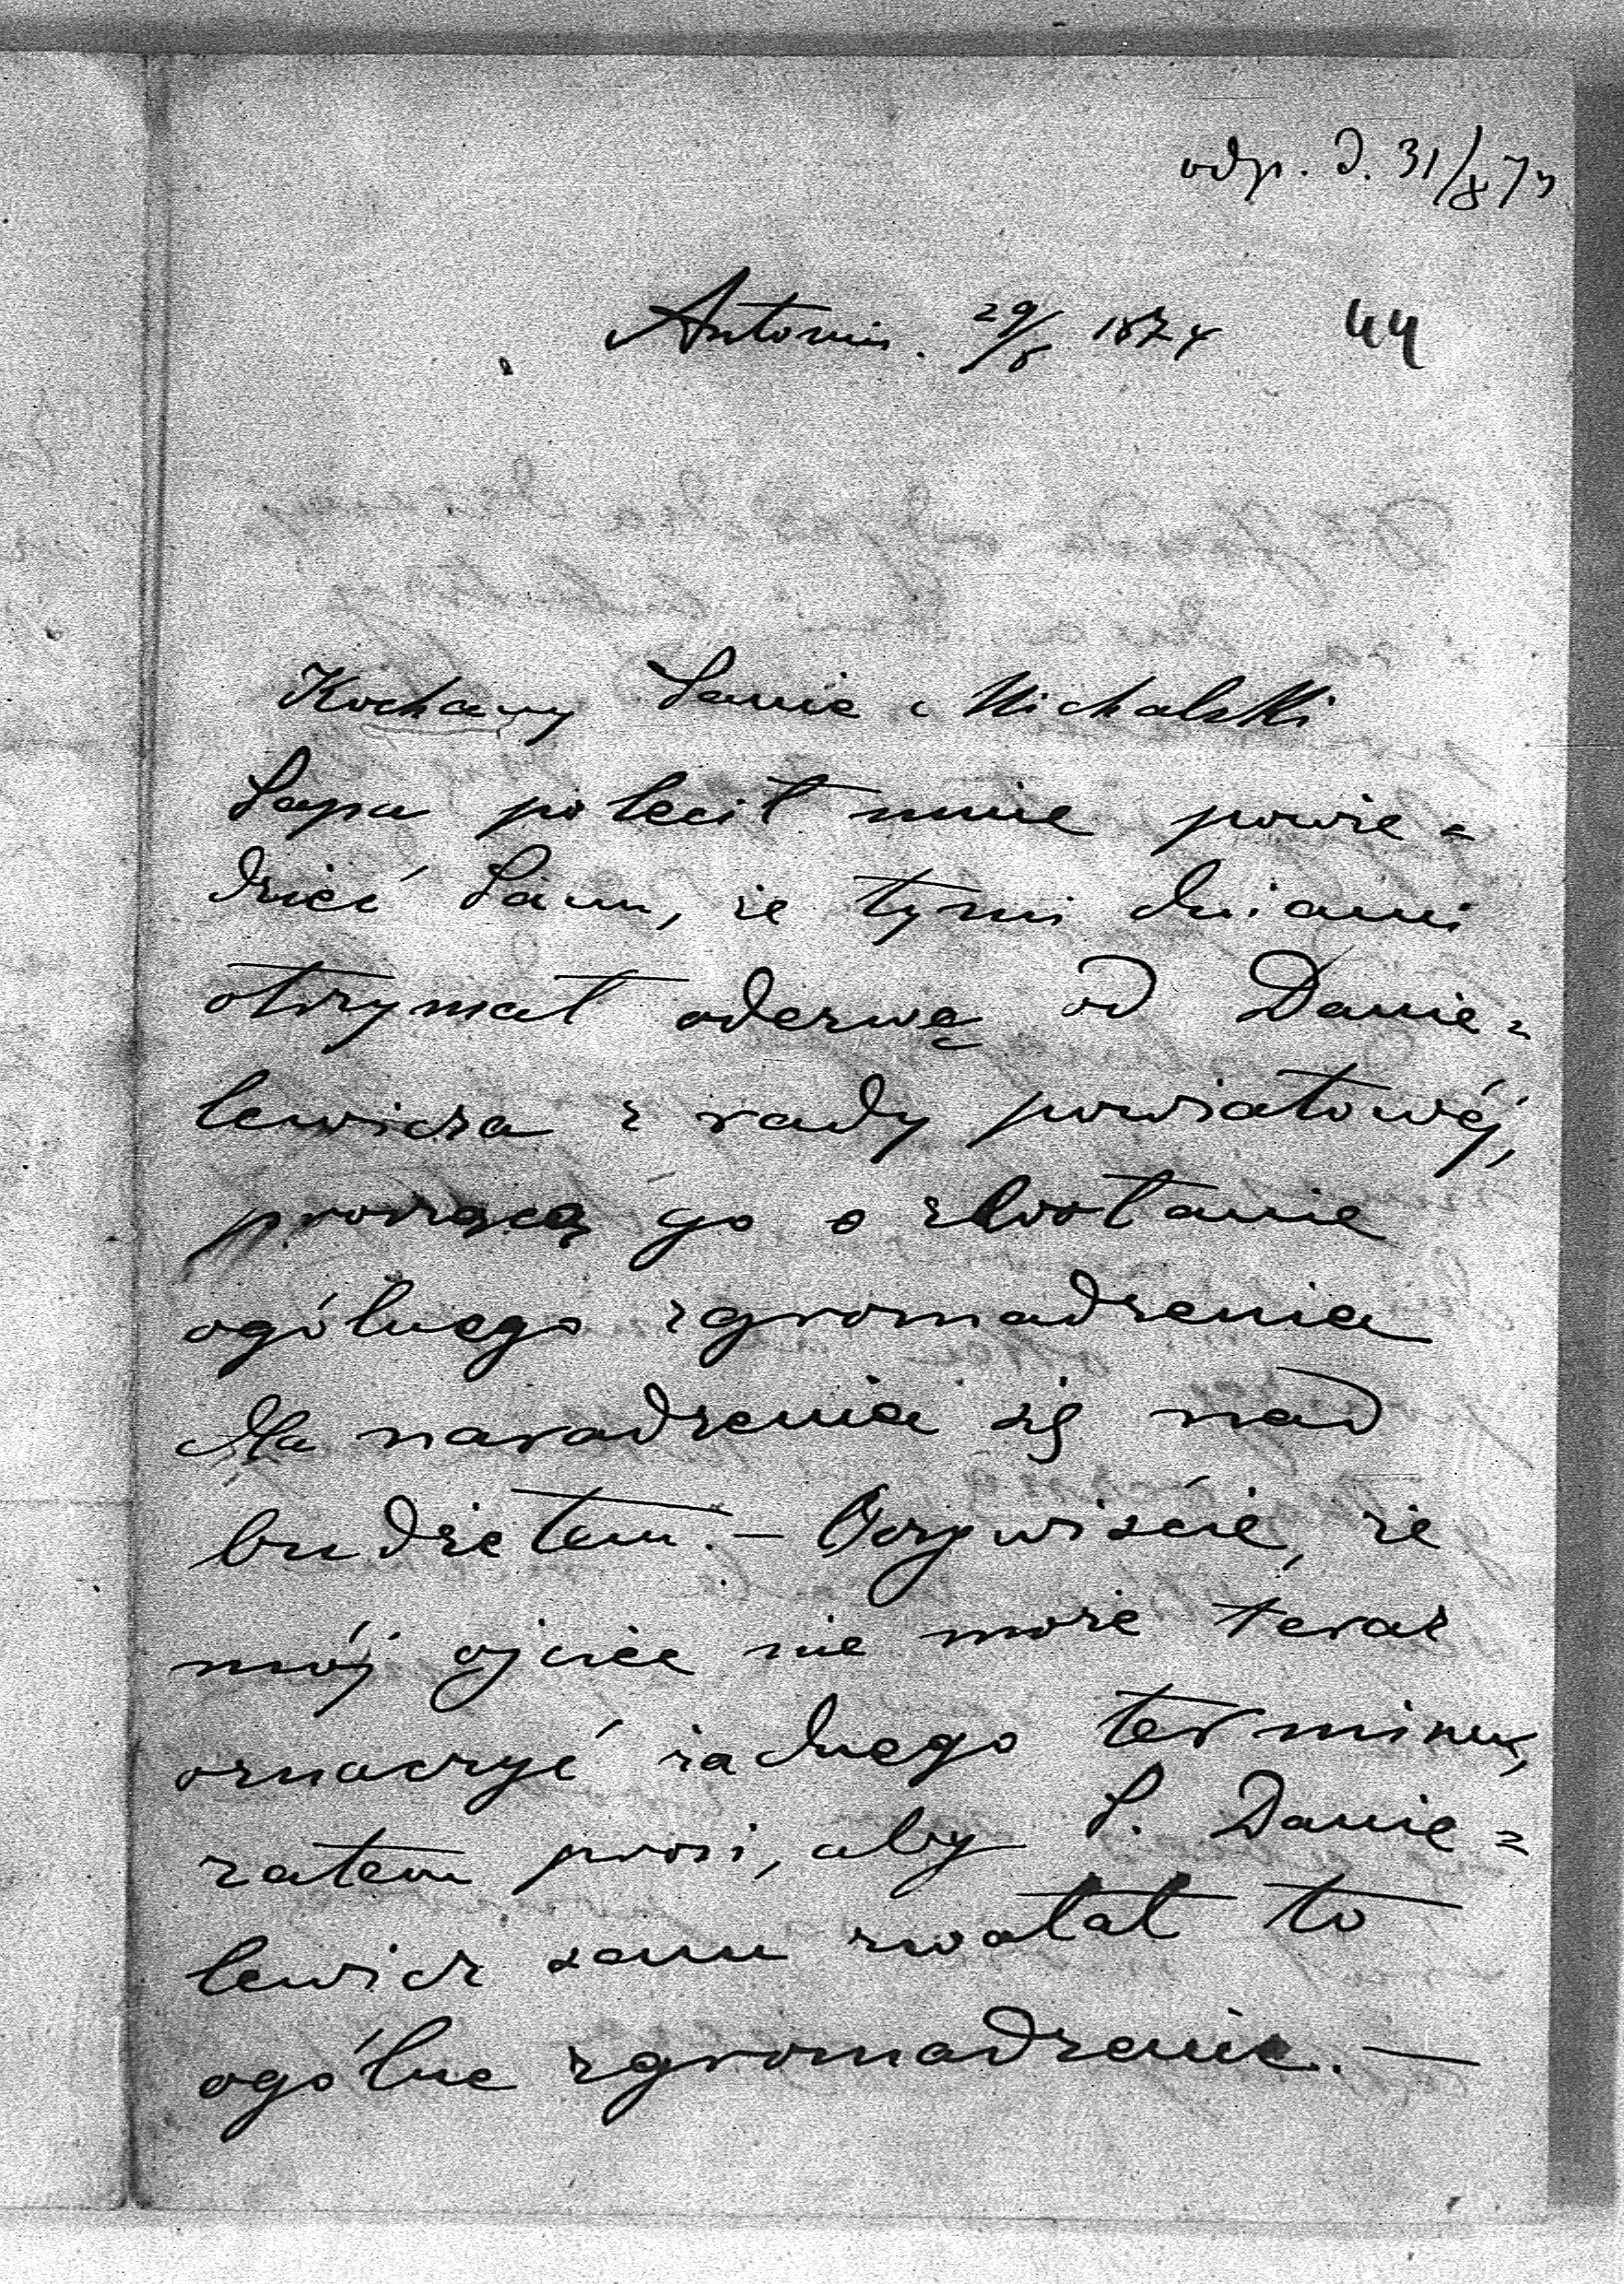 odp. d. 31/8 74
Antonin. 29/8 1874 44
Kochany Panie Michalski
Papa polecił mnie powie=
dzieć Panu, że tymi dniami
otrzymał odezwę od Danie=
lewicza z rady powiatowéj,
proszącą go o zwołanie
ogólnego zgromadzenia
dla naradzenia się nad
budżetem. — Oczywiście, że
mój ojciec nie może teraz
oznaczyć żadnego terminu,
zatem prosi, aby P. Danie=
lewicz sam zwołał to
ogólne zgromadzenie. —